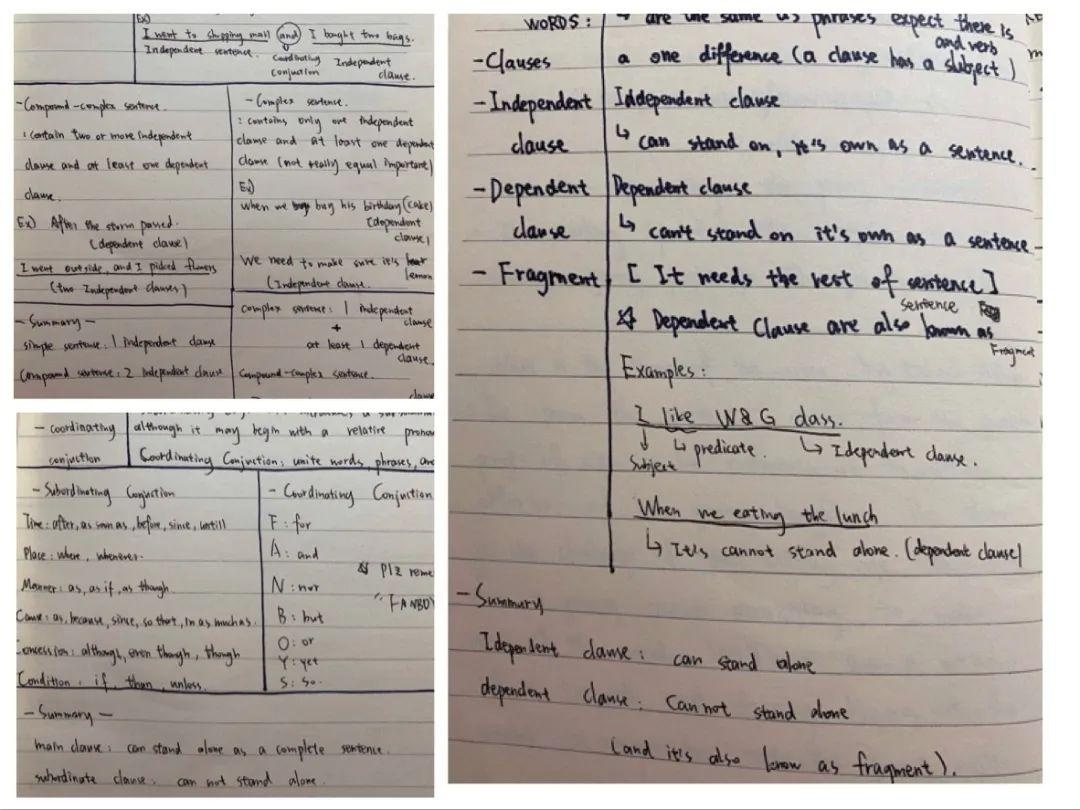 Ex)
I went to shopping mall and I bought two bags.
Independent sentence.
Coordinating
conjuction
Independent
clause.
- Compound-complex sentence.
: contain two or more independent
clause and at least one dependent
clause.
Ex) After the storm passed.
(dependent clause)
I went outside, and I picked flowers
(two Independent clauses)
- Summary -
simple sentence: 1 independent clause
Compound sentence: 2 Independent clause
- Complex sentence.
: contains only one independent
clause and at least one dependent
clause (not really equal important)
Ex)
When we buy his birthday (cake)
(dependent
clause)
We need to make sure it's
lemon
(Independent clause.
Complex sentence: 1 independent
clause
+
at least 1 dependent
clause.
Compound-complex sentence.
clause
- coordinating
conjuction
although it may begin with a relative pronou
Coordinating Conjuction: unite words, phrases, and
- Subordinating Conjuction
Time: after, as soon as, before, since, untill
Place: where, whenever.
Manner: as, as if, as though
Cause: as, because, since, so that, in as much as.
Concession: although, even though, though
Condition: if, than, unless.
- Coordinating Conjuction
F: for
A: and
N: nor
B: but
O: or
Y: yet
S: so.
☆ Plz reme
"FANBO
- Summary -
main clause: can stand alone as a complete sentence.
subordinate clause: can not stand alone.
WORDS:
- Clauses
- Independent
clause
- Dependent
clause
- Fragment
↳ are the same as phrases expect there is
and verb
a one difference (a clause has a subject)
Iddependent clause
↳ can stand on, it's own as a sentence.
Dependent clause
↳ can't stand on it's own as a sentence
[ It needs the rest of sentence]
sentence
☆ Dependent Clause are also known as
Fragment
Examples:
I like W & G class.
Subject
↳ predicate.
↳ Idependent clause.
When we eating the lunch
↳ It's cannot stand alone. (dependent clause)
- Summary
Idependent clause: can stand alone
dependent clause: Can not stand alone
(and it's also know as fragment).